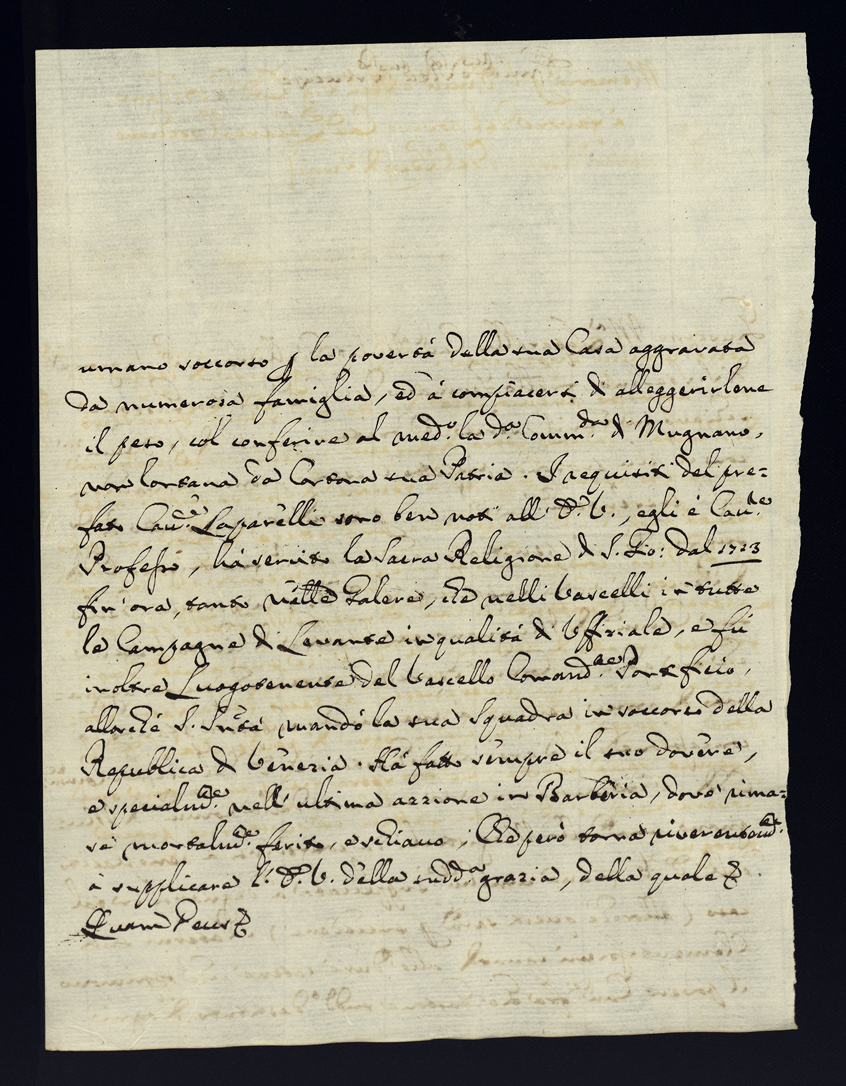 umano soccorso ꝑ la povertá della sua Casa aggravata
da numerosa famiglia, ed á compiacersi di alleggerirlene
il peso, col conferire al med.º la d.ª Comm.da di Mugnano,
non lontana da Cortona sua Patria. I requisiti del pre=
fato Cav.e Laparelli sono ben noti all' E. V., egli é Cav.re
Professo, há servito la Sacra Religione di S. Gio: dal 1713
fin' ora, tanto nelle Galere, che nelli Vascelli in tutte
le Campagne di Levante in qualitá di Uffiziale, e fú
inoltre Luogotenente del Vascello Comand.te Pontificio,
allorché S. Sntá mandó la sua Squadra in soccorso della
Republica di Venezia. Há fatto sempre il suo dovere,
e specialm.te nell' ultima azzione in Barberia, dove rima=
se mortalm.te ferito, e schiavo; Che peró torna riverentem.te
á supplicare l' E. V. della sudd.a grazia, della quale &.
Quam Deus &